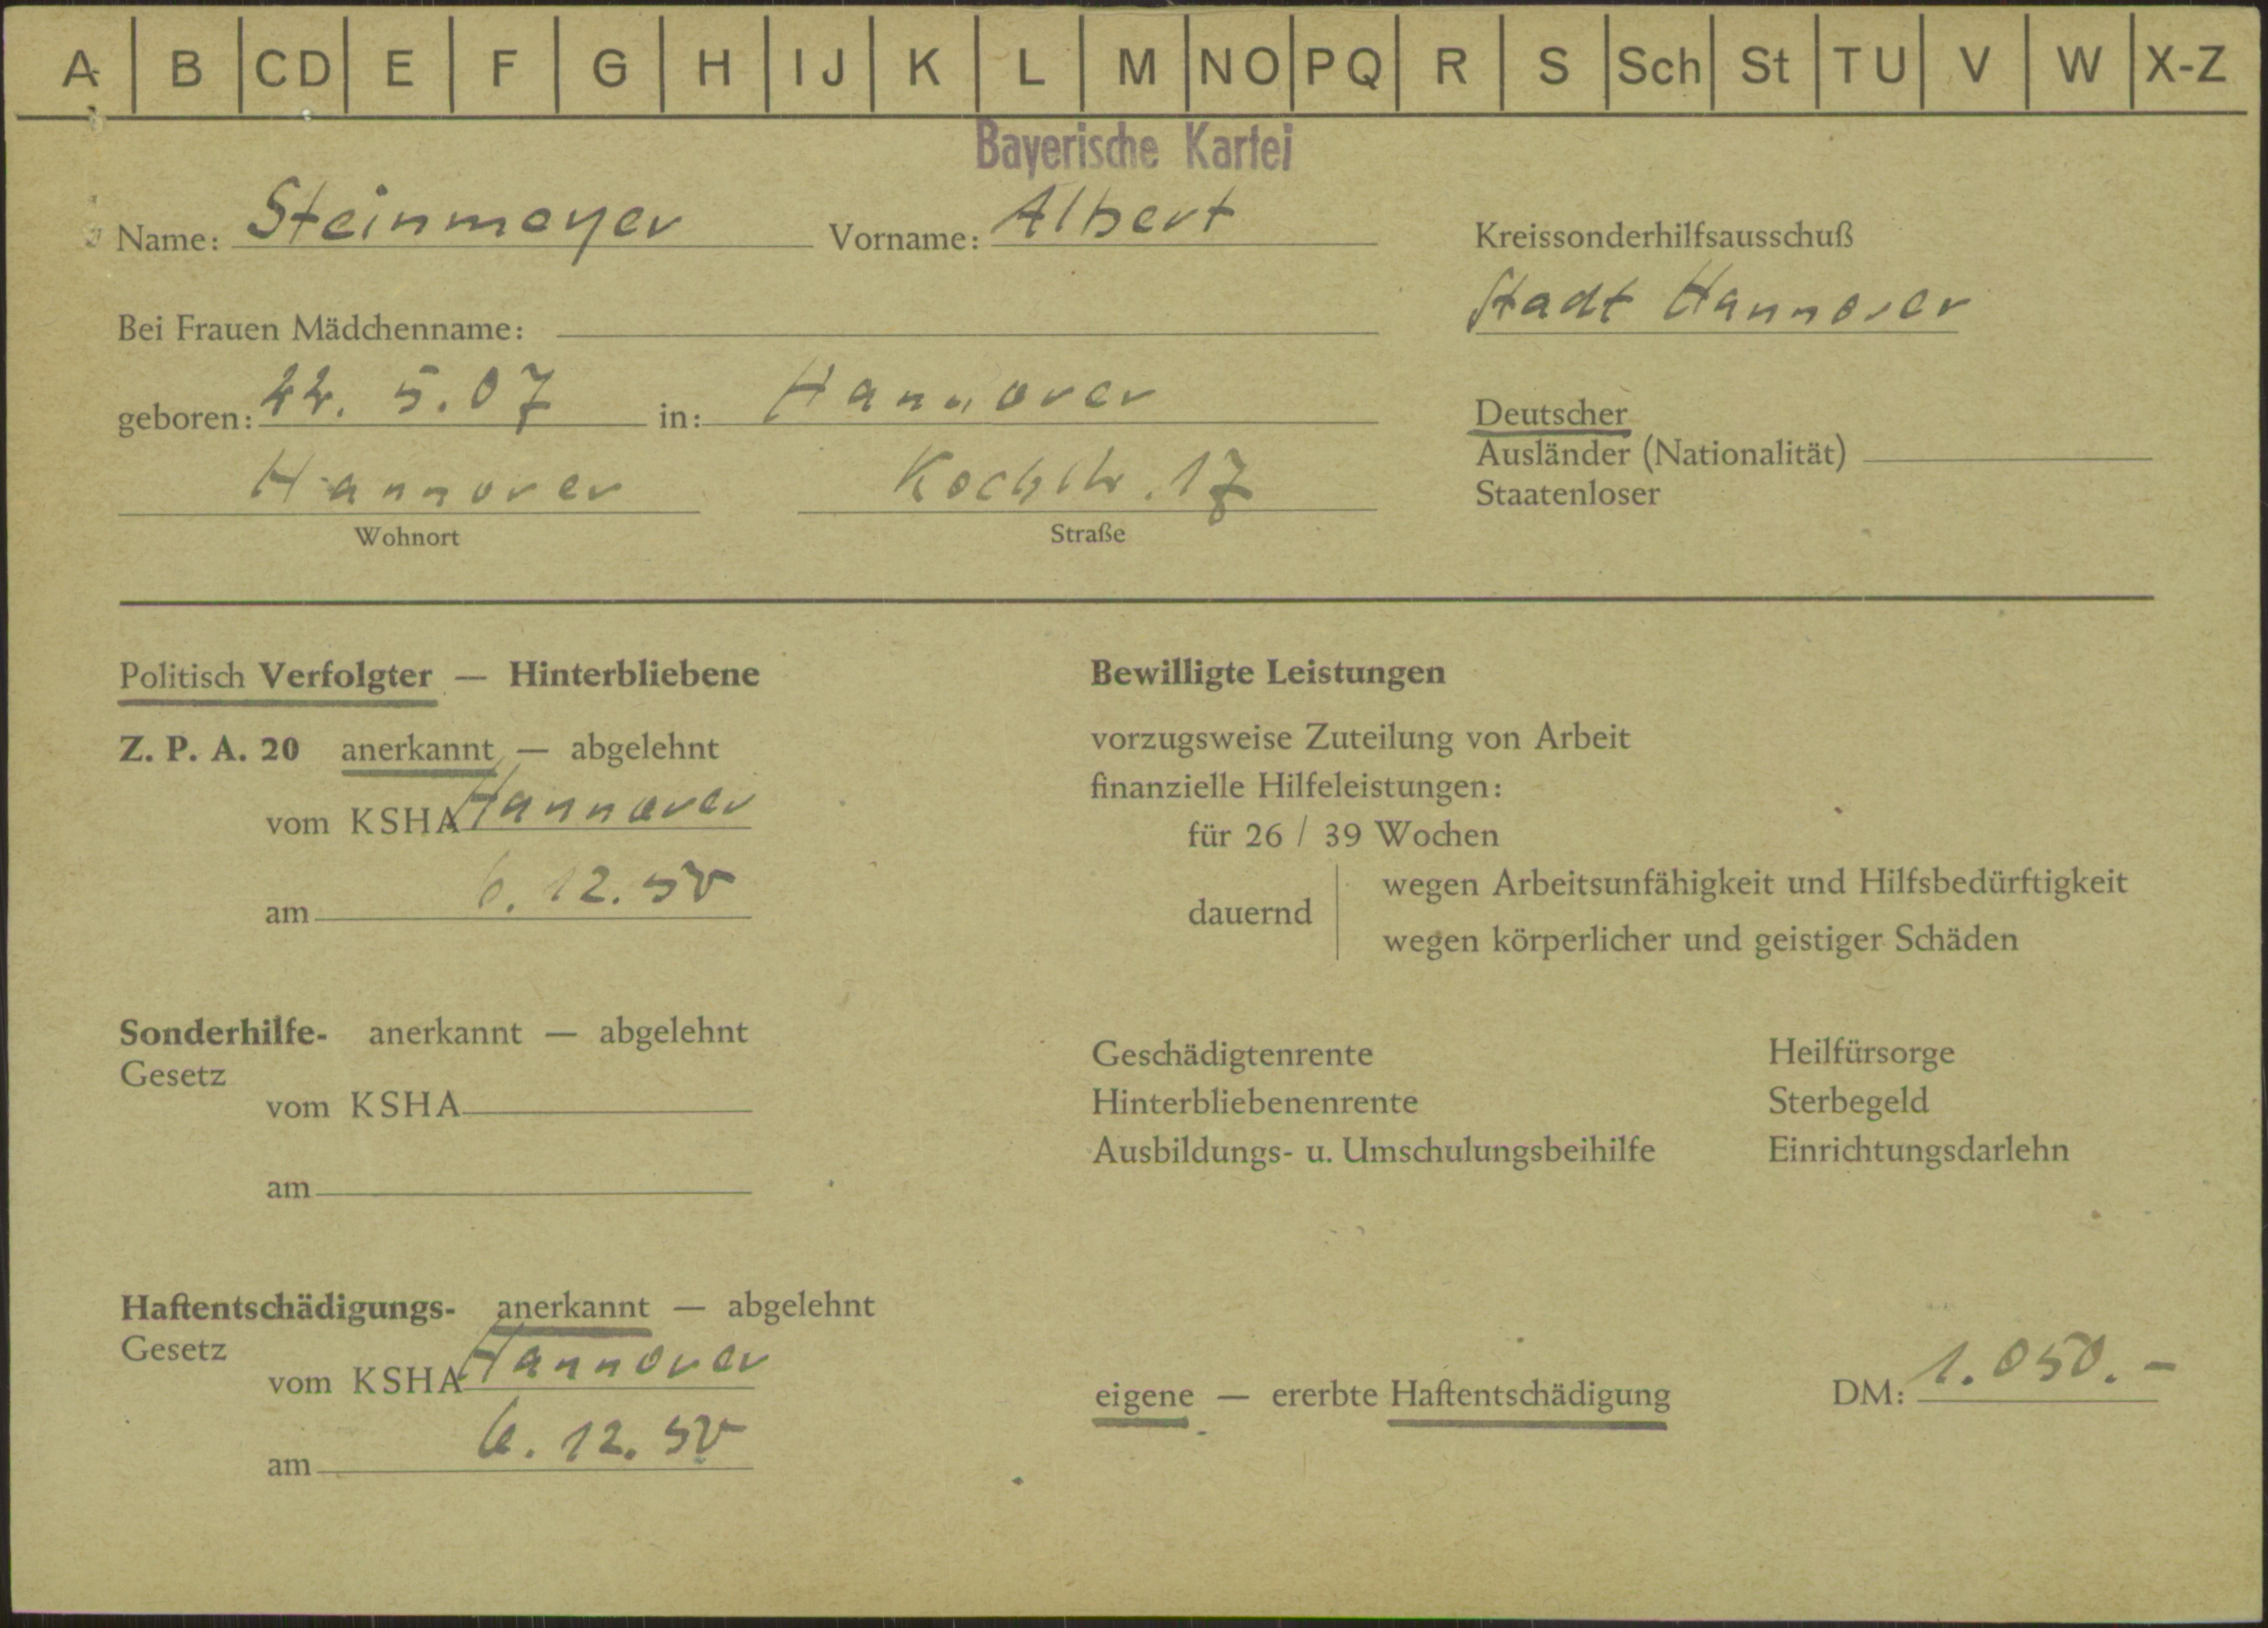 A B CD E F G H IJ K L M NO PQ R S Sch St TU V W X-Z
Bayerische Kartei
Name: Steinmeyer Vorname: Albert
Kreissonderhilfsausschuß
Stadt Hannover
Bei Frauen Mädchenname:
geboren: 22. 5. 07 in: Hannover
Deutscher
Ausländer (Nationalität)
Staatenloser
Hannover Kochstr. 17
Wohnort Straße
Politisch Verfolgter — Hinterbliebene
Z. P. A. 20 anerkannt — abgelehnt
vom KSHA Hannover
am 6. 12. 50
Sonderhilfe- anerkannt — abgelehnt
Gesetz
vom KSHA
am
Haftentschädigungs- anerkannt — abgelehnt
Gesetz
vom KSHA Hannover
am 6. 12. 50
Bewilligte Leistungen
vorzugsweise Zuteilung von Arbeit
finanzielle Hilfeleistungen:
für 26 / 39 Wochen
dauernd
wegen Arbeitsunfähigkeit und Hilfsbedürftigkeit
wegen körperlicher und geistiger Schäden
Geschädigtenrente Heilfürsorge
Hinterbliebenenrente Sterbegeld
Ausbildungs- u. Umschulungsbeihilfe Einrichtungsdarlehn
eigene — ererbte Haftentschädigung DM: 1.050.-